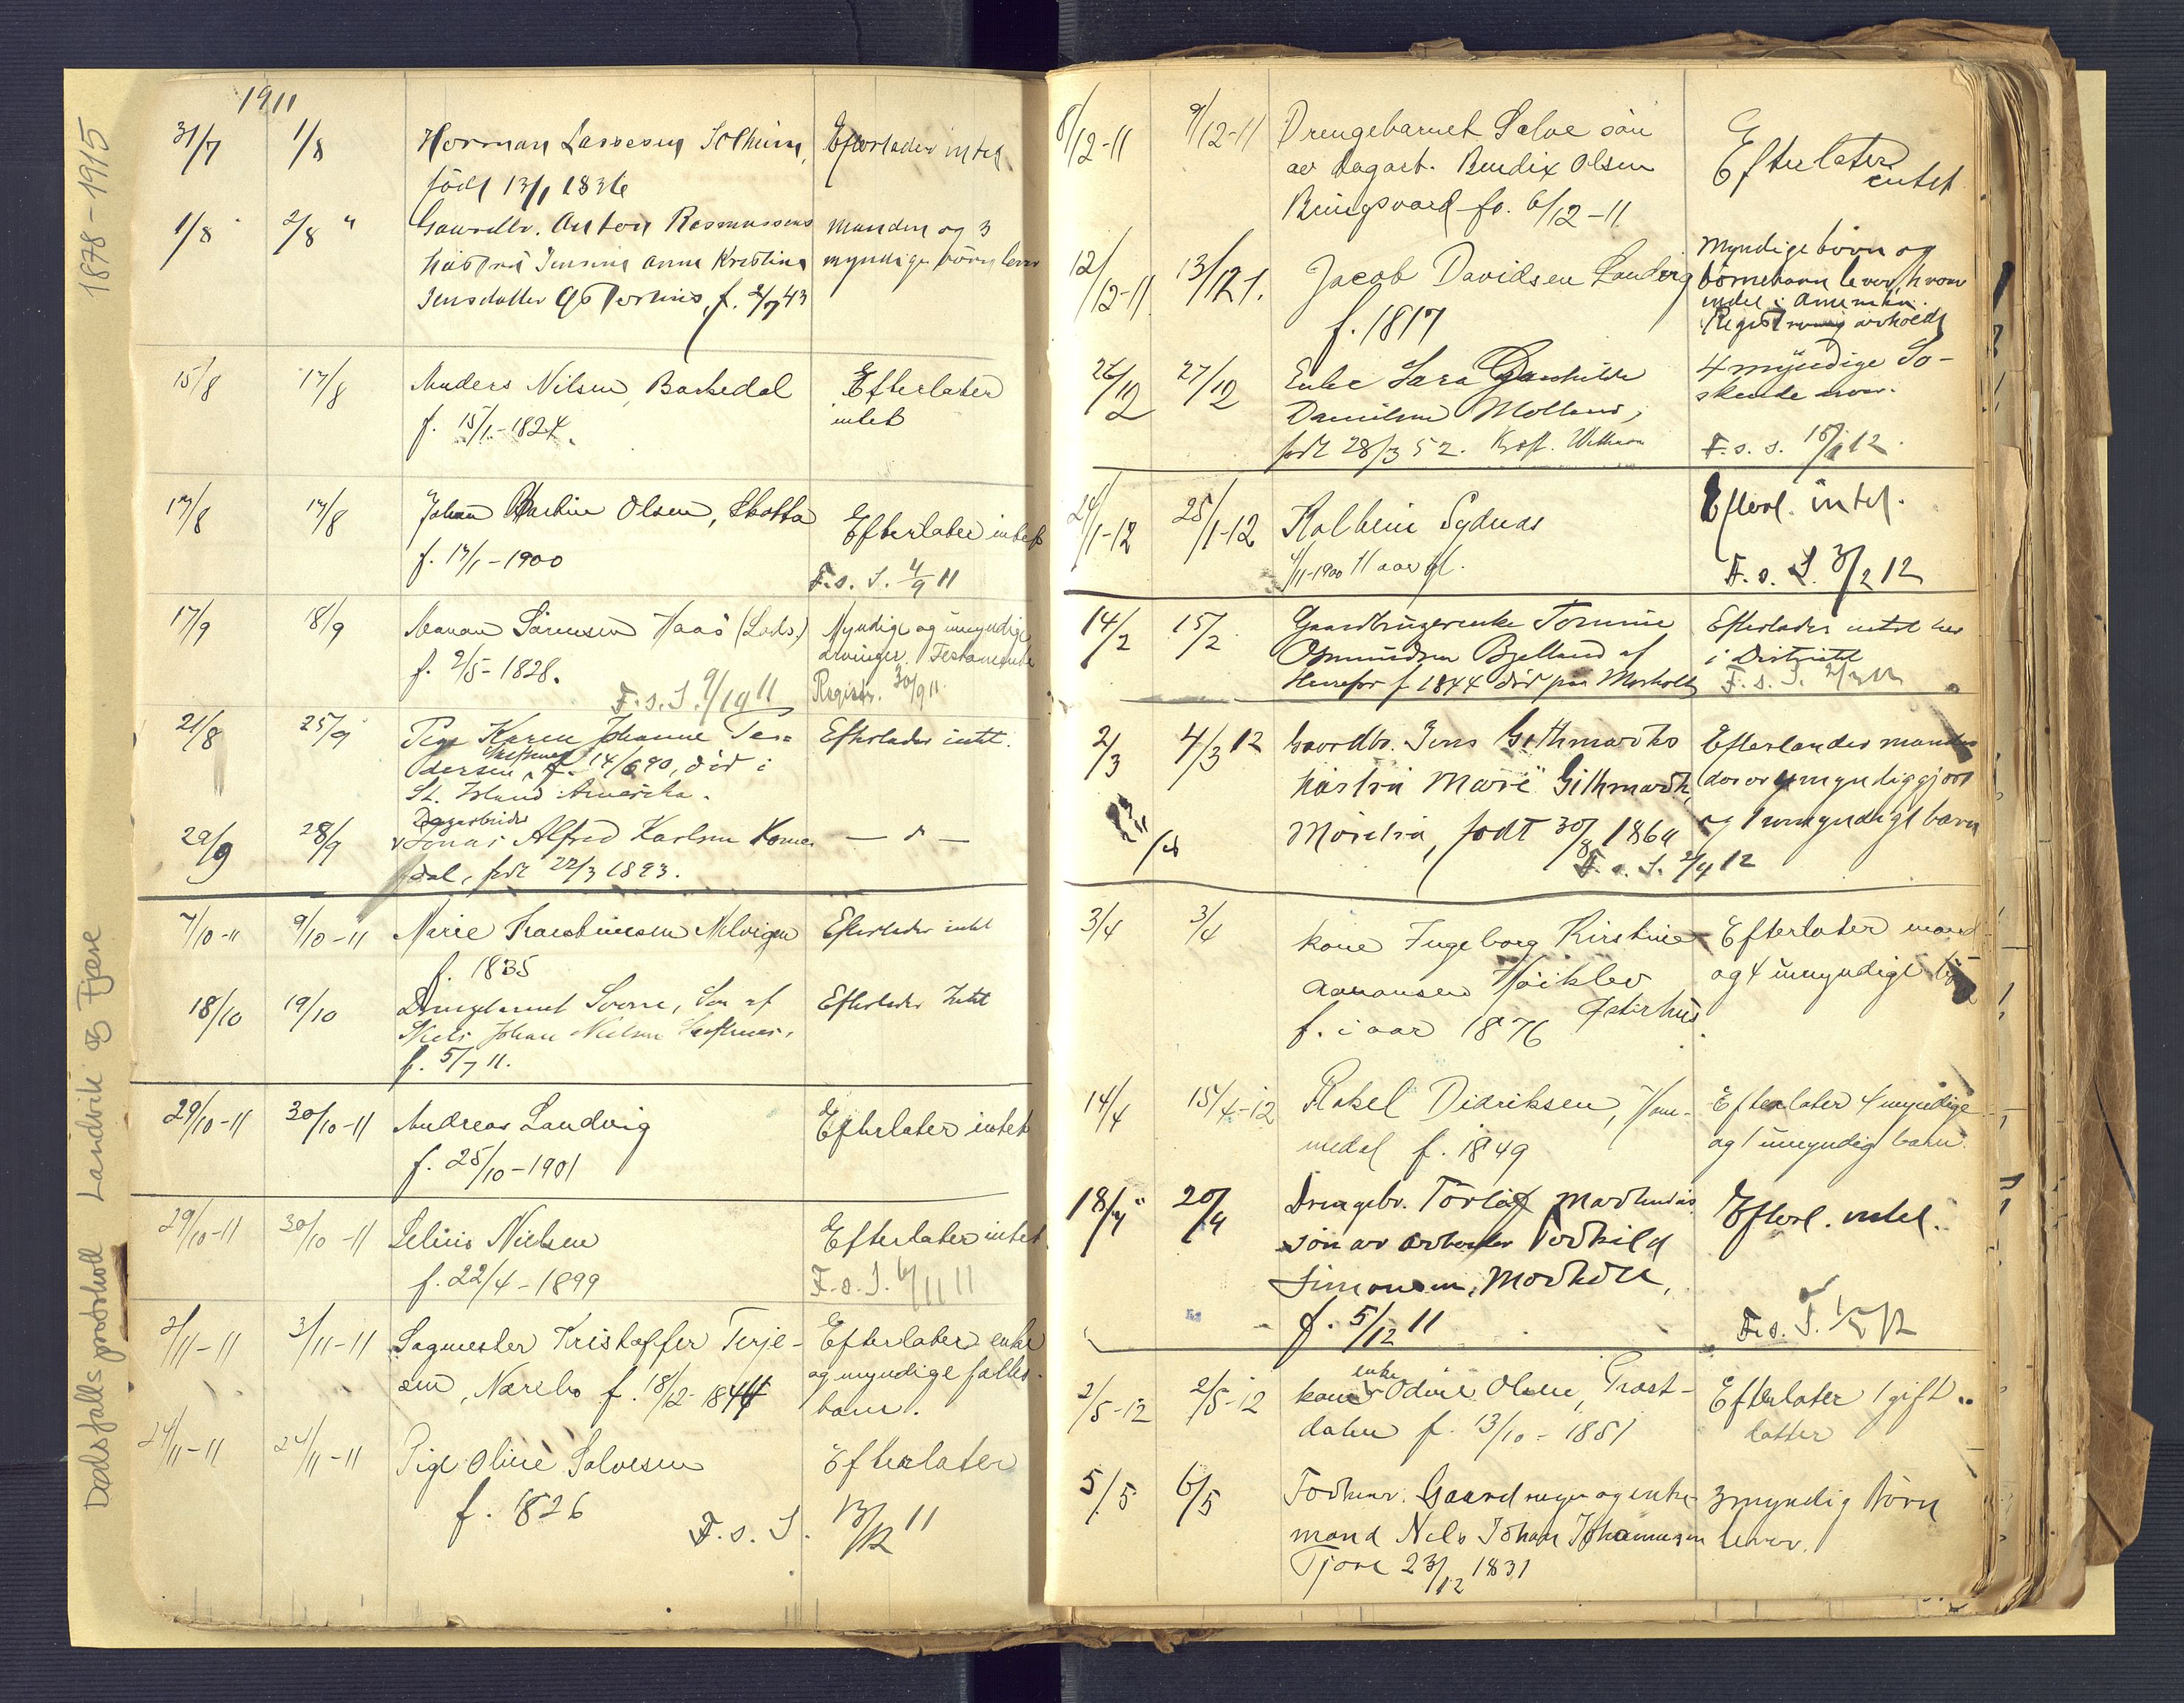 Dødsfallsprotokoll Landvik og Fjære 1878-1915
1911
31/7 1/8 Herman Lassesen Solheim, Efterlader intet
født 13/1 1836
1/8 2/8 " Gaardbr. Anton Rasmussens manden og 3
hustru Jensine Anne Kristine myndige börn lever
Jensdatter Østerhus, f. 2/7 43
15/8 17/8 Anders Nilsen, Barkedal Efterlater
f. 15/1-1824. intet
17/8 17/8 Johan Martin Olsen, Skotta Efterlater intet
f. 17/1-1900
F. s. S. 4/9 11
17/9 18/9 Sörensen Haaö (Lods.) Myndige og umyndige
f. 2/5-1828. arvinger. Testamente
F. s. S. 9/10 11 Registr. 30/9 11.
21/8 25/9 Pige Karen Johanne Pe- Efterlader intet.
dersen f. 14/6 90, död i
St. Island Amerika.
Dagarbeider
22/9 28/9 Jonas Alfred Karlsen Home- — " —
dal, född 22/3 1893.
7/10-11 9/10-11 Marie Efterlader intet
f. 1835
18/10 19/10 Drengebarnet Sverre, Sön af Efterlader Intet
Niels Johan Nielsen
f. 5/7 11.
29/10-11 30/10-11 Andreas Landvig Efterlater intet
f. 25/10-1901
29/10-11 30/10-11 Nielsen Efterlater intet.
f. 22/4-1899 F. s. S. 6/11 11
2/11-11 3/11-11 Sagmester Kristoffer Terje- Efterlater enke
sen, Narebo f. 18/12-1844 og myndige fælles-
barn.
24/11-11 24/11-11 Pige Oline Salvesen Efterlater
f. 1826
F. s. S. 13/12 11
8/12-11 9/12-11 Drengebarnet Salve sön Efterlater
av dagarb. Bendix Olsen intet
Bringsvard fö. 6/12-11
12/12-11 13/12 1. Jacob Davidsen Landvig Myndige börn og
f. 1817 börnebarn lever, hvorav
endel i Amerika.
Registrering avholdt
26/12 27/12 Enke Sara Gunhilde 4 myndige Sö-
Danielsen Molland, skende
född 28/3 52. F. s. S. 15/1 12.
24/1-12 25/1-12 Kolbein Sydnes Efterl. intet.
4/11-1900 11 aar gl.
F. s. S. 3/2 12
14/2 15/2 Gaardbrugerenke Tomine Efterlader intet her
Osmundsen Bjelland af i Distriktet
f 1844 död paa Morholt F. s. S. 2/3 12
2/3 4/3 12 Gaardbr. Jens Githmarks Efterlander manden
hustru Marie Githmark, der er umyndiggjort
født 30/8 1864 og 1 umyndigt barn
F. s. S. 2/4 12
3/4 3/4 kone Ingeborg Kirstine Efterlater mand
Aanonsen Höiklev og 4 umyndige
Østerhus
f. i aar 1876
14/4 15/4-12 Rakel Didriksen, Hom- Efterlater 4 myndige
medal f. 1849 og 1 umyndig barn.
18/4 " 20/4 Drengebr. Torlöf Marthenius Efterl. intet.
sön av arbeider Torkild
Simonsen, Morholt,
f. 5/12 11 F. s. S. 1/5 12
enke
2/5-12 2/5-12 kone Odine Olsen, Trast- Efterlater 1 gift
dalen f. 13/10-1851 datter
5/5 6/5 Forhenv. Gaard og enke- 3 myndig börn
mand Nels Johan Johannesen lever.
Tjore 23/12 1831